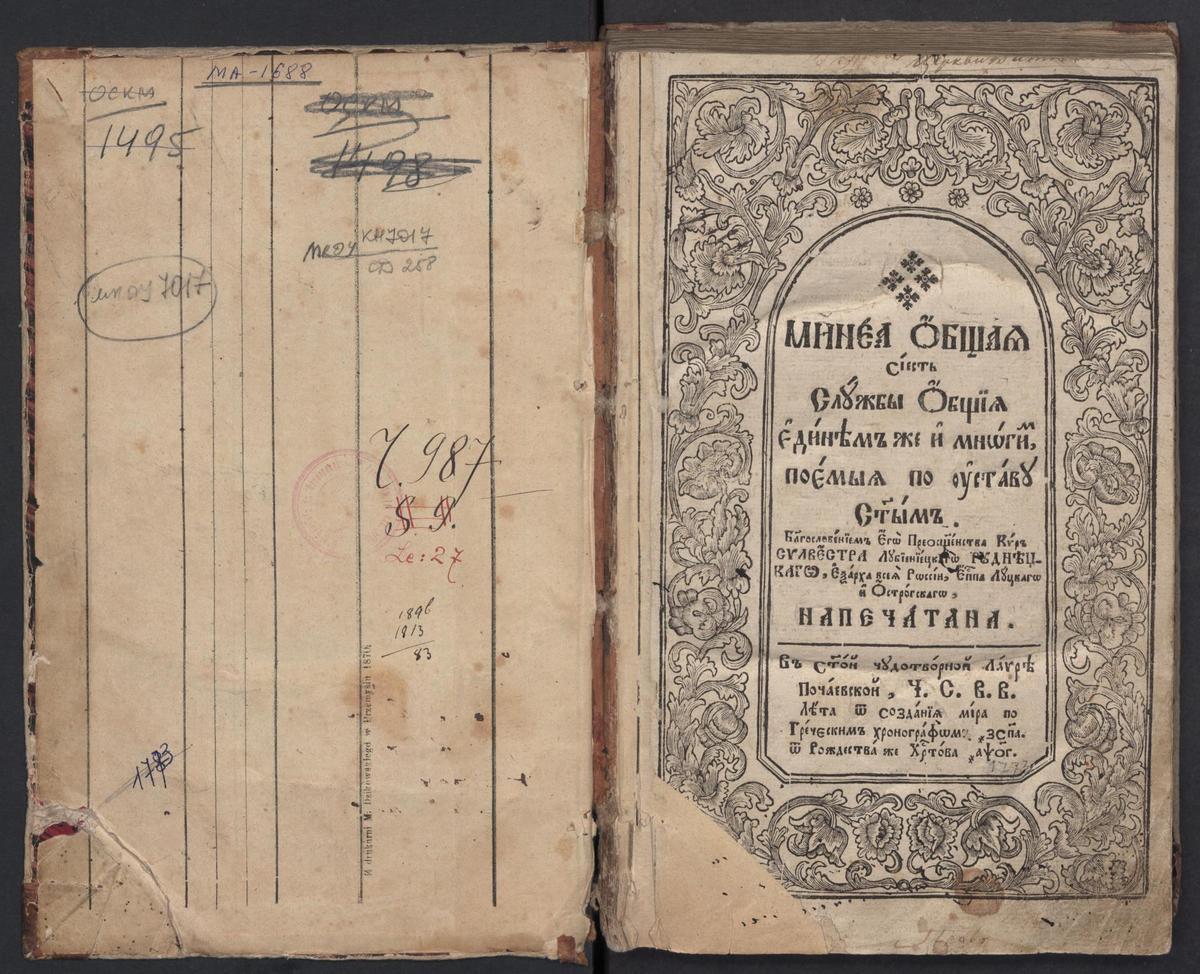 МА-1688
ОСКМ
1495
ОСКМ
1498
КН7017
СД 258
7017
Ч. 987
S. 9.
Le: 27
1896
1813
83
1783
W drukarni M. Dzikowskiego w Przemyślu 1870
МИНЕ́А Ѻ҆́БЩАѦ
Сі́есть
Слꙋ́жбы Ѻ҆́бщїѧ
є҆ди́нѣмъ же и҆ мнѡ́гиⷨ,
поє́мыѧ по ᲂу҆ста́вꙋ
Ст҃ы́мъ.
Бл҃гослове́нїемъ Є҆гѡ̀ Преѡсщ҃е́нства Кѵ́ръ
СѴЛВЕ́СТРА Лꙋбїени́ецкагѡ РꙋДНѢ́Ц-
КАГѠ, Є҆ѯа́рха всеѧ̀ Рѡссі́и, Є҆пⷭ҇па Лꙋ́цкагѡ
и҆ Ѻ҆стро́гскагѡ,
НАПЕЧА́ТАНА.
Въ Ст҃о́й чꙋдотво́рной Ла́ѵрѣ
Поча́евской, Ч. С. В. В.
Лѣ́та ѿ созда́нїѧ мі́ра по
Гре́ческимъ хроногра́фѡмъ ҂зспа.
ѿ Рождества̀ же Хрⷭ҇то́ва ҂аѱо́г.